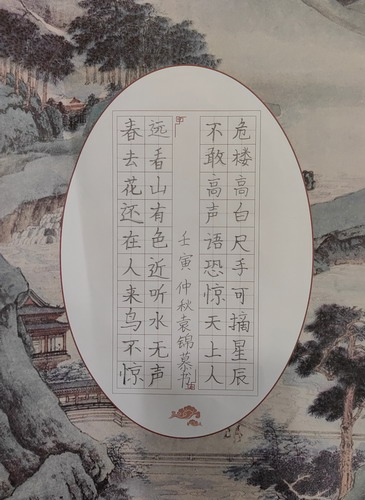 危楼高白尺手可摘星辰
不敢高声语恐惊天上人
壬寅仲秋袁锦慕书
远看山有色近听水无声
春去花还在人来鸟不惊